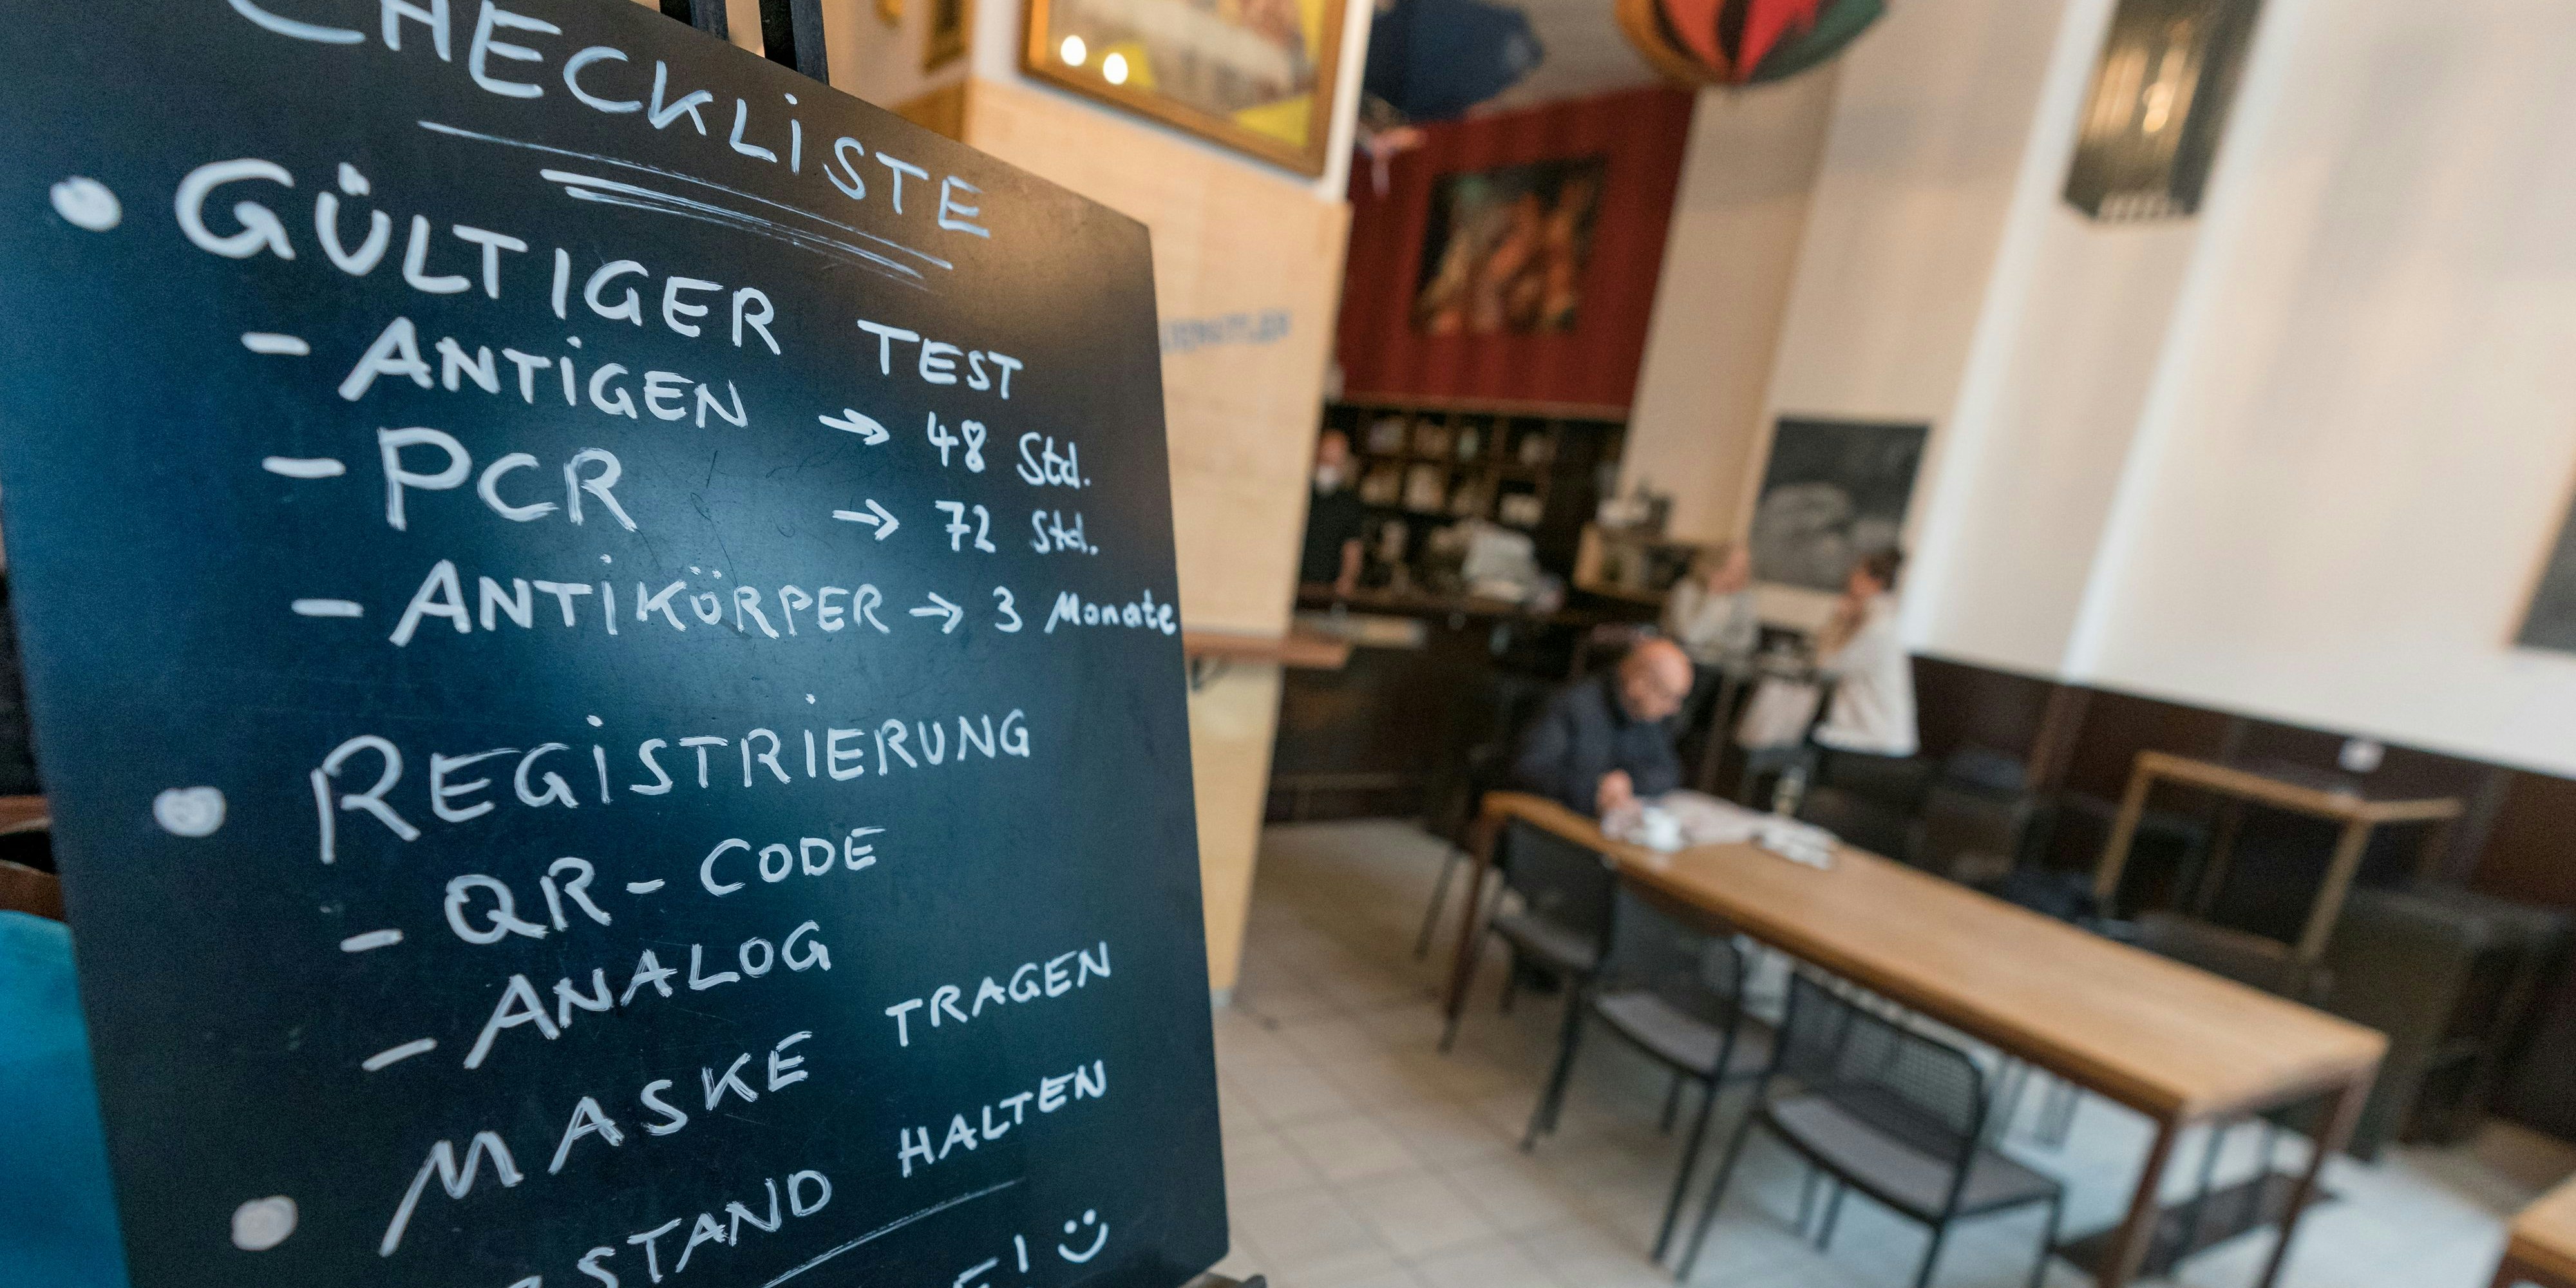 CHECKLiSTE
• GÜLTIGER TEST
- ANTiGEN → 48 Std.
- PCR → 72 Std.
- ANTiKÖRPER → 3 Monate
• REGiSTRiERUNG
- QR-CODE
- ANALOG
• MASKE TRAGEN
HALTEN